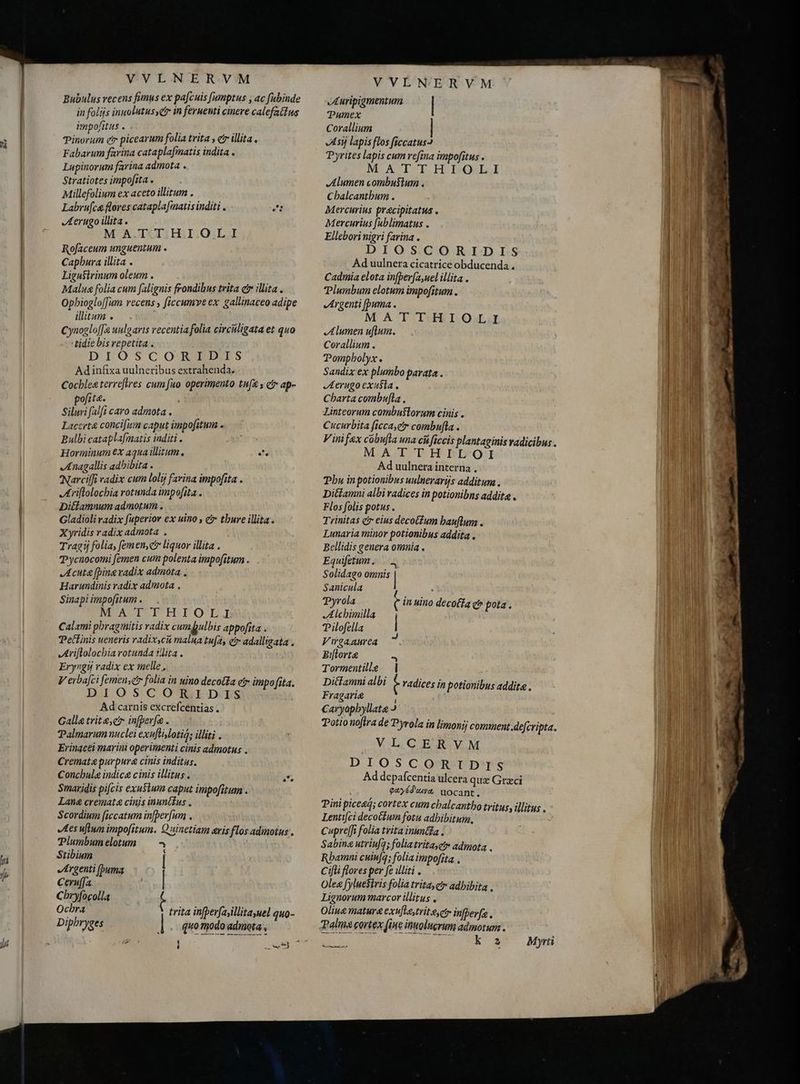 VVLNERVM
Bubulus recens fimus ex pascuis sumptus, ac subinde
in folijs inuolutus, & in feruenti cinere calefactus
impositus.
Pinorum & picearum folia trita, & illita.
Fabarum farina cataplasmatis indita.
Lupinorum farina admota.
Stratiotes imposita.
Millefolium ex aceto illitum.
Labruscæ flores cataplasmatis inditi.
Aerugo illita.
MATTHIOLI
Rosaceum unguentum.
Caphura illita.
Ligustrinum oleum.
Maluæ folia cum salignis frondibus trita & illita.
Ophioglossum recens, siccumve ex gallinaceo adipe
illitum.
Cynoglossæ uulgaris recentia folia circūligata et quo
tidie bis repetita.
DIOSCORIDIS
Ad infixa uulneribus extrahenda.
Cochleæ terrestres cum suo operimento tusæ, & ap-
positæ.
Siluri salsi caro admota.
Lacertæ concisum caput impositum.
Bulbi cataplasmatis inditi.
Horminum ex aqua illitum.
Anagallis adhibita.
Narcissi radix cum lolij farina imposita.
Aristolochia rotunda imposita.
Dictamnum admotum.
Gladioli radix superior ex uino, & thure illita.
Xyridis radix admota.
Tragij folia, semen, & liquor illita.
Pycnocomi semen cum polenta impositum.
Acutæ spinæ radix admota.
Harundinis radix admota.
Sinapi impositum.
MATTHIOLI
Calami phragmitis radix cum bulbis apposita.
Pectinis ueneris radix, cū malua tusa, & adalligata.
Aristolochia rotunda illita.
Eryngij radix ex melle.
Verbasci semen, & folia in uino decocta & imposita.
DIOSCORIDIS
Ad carnis excrescentias.
Gallæ tritæ, & inspersæ.
Palmarum nuclei exusti, lotiq; illiti.
Erinacei marini operimenti cinis admotus.
Crematæ purpuræ cinis inditus.
Conchulæ indicæ cinis illitus.
Smaridis piscis exustum caput impositum.
Lanæ crematæ cinis inunctus.
Scordium siccatum inspersum.
Aes ustum impositum. Quinetiam æris flos admotus.
Plumbum elotum
Stibium
Argenti spuma
Cerussa
Chrysocolla
Ochra trita inspersa, illita, uel quo-
Diphryges quo modo admota,
VVLNERVM
Auripigmentum
Pumex
Corallium
Asij lapis flos siccatus
Pyrites lapis cum resina impositus.
MATTHIOLI
Alumen combustum.
Chalcanthum.
Mercurius præcipitatus.
Mercurius sublimatus.
Ellebori nigri farina.
DIOSCORIDIS
Ad uulnera cicatrice obducenda.
Cadmia elota inspersa, uel illita.
Plumbum elotum impositum.
Argenti spuma.
MATTHIOLI
Alumen ustum.
Corallium.
Pompholyx.
Sandix ex plumbo parata.
Aerugo exusta.
Charta combusta.
Linteorum combustorum cinis.
Cucurbita sicca, & combusta.
Vini fæx cōbusta una cū siccis plantaginis radicibus.
MATTHILOI
Ad uulnera interna.
Phu in potionibus uulnerarijs additum.
Dictamni albi radices in potionibus additæ.
Flos solis potus.
Trinitas & eius decoctum haustum.
Lunaria minor potionibus addita.
Bellidis genera omnia.
Equisetum.
Solidago omnis
Sanicula
Pyrola in uino decocta & pota.
Alchimilla
Pilosella
Virga aurea
Bistortæ
Tormentillæ
Dictamni albi radices in potionibus additæ.
Fragariæ
Caryophyllatæ
Potio nostra de Pyrola in limonij comment. descripta.
VLCERVM
DIOSCORIDIS
Ad depascentia ulcera quæ Græci
φαγέδαινα uocant.
Pini piceæq; cortex cum chalcantho tritus, illitus.
Lentisci decoctum fotu adhibitum.
Cupressi folia trita inuncta.
Sabinæ utriusq; folia trita, & admota.
Rhamni cuiusq; folia imposita.
Cisti flores per se illiti.
Oleæ syluestris folia trita, & adhibita.
Lignorum marcor illitus.
Oliuæ maturæ exustæ, tritæ, & inspersæ.
Palmæ cortex siue inuolucrum admotum.
k 2 Myrti